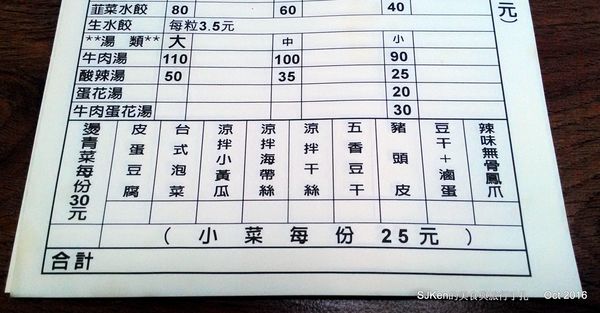 韮菜水餃 80 60 40
元)
生水餃 每粒3.5元
**湯 類** 大 中 小
牛肉湯 110 100 90
酸辣湯 50 35 25
蛋花湯 20
牛肉蛋花湯 30
燙青菜每份30元
皮蛋豆腐
台式泡菜
涼拌小黃瓜
涼拌海帶絲
涼拌干絲
五香豆干
豬頭皮
豆干+滷蛋
辣味無骨鳳爪
( 小 菜 每 份 25元 )
合計
SJKen的美食與旅行手札 Oct 2016